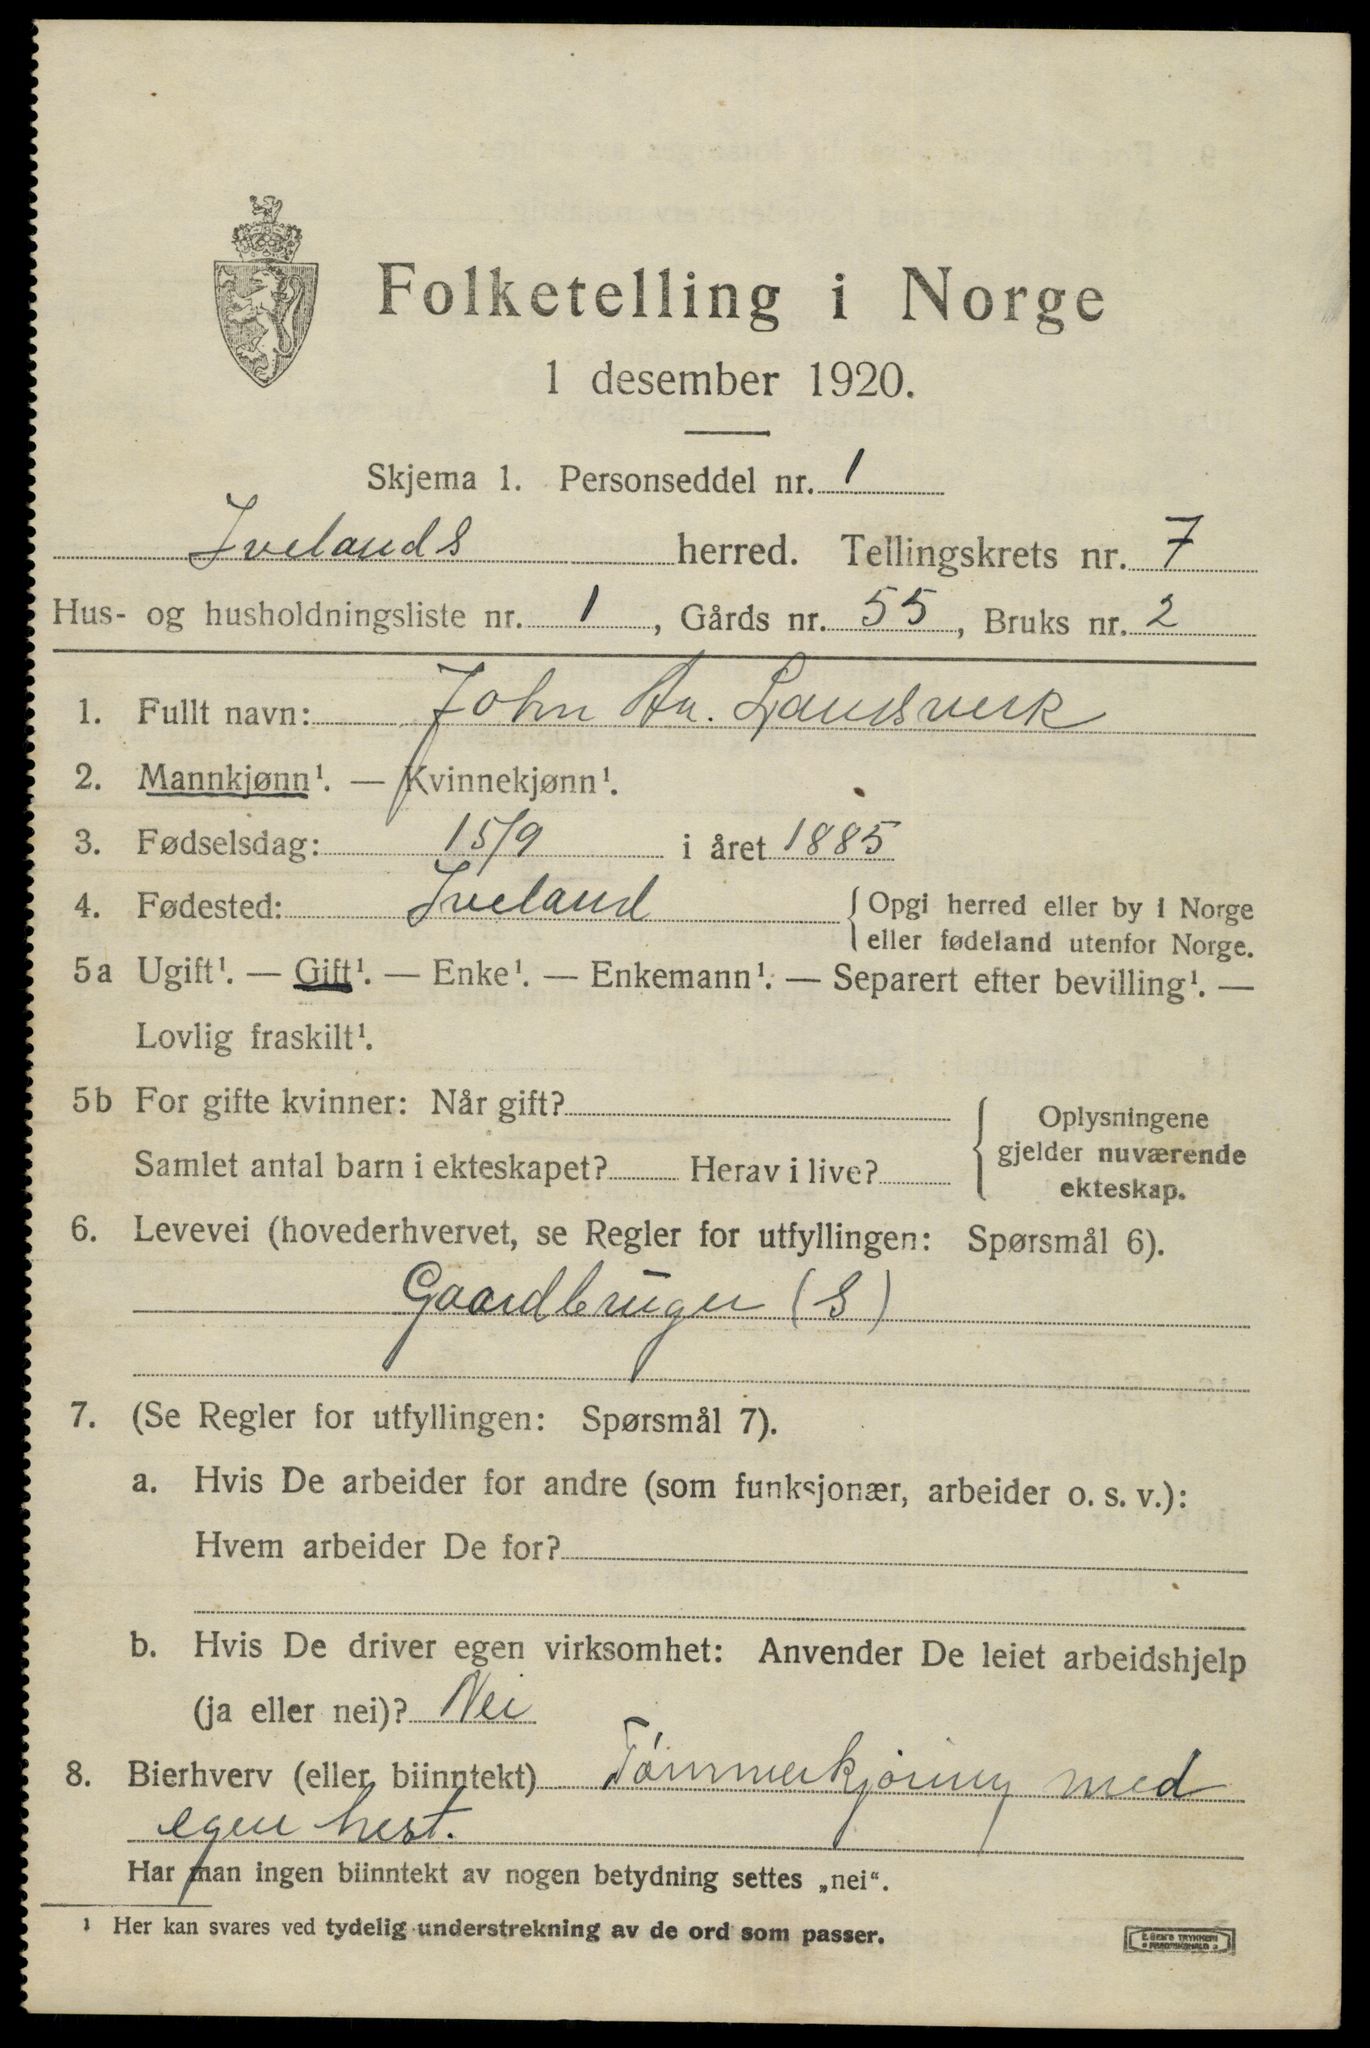 Folketelling i Norge
1 desember 1920.
Skjema 1. Personseddel nr. 1
Ivelands herred. Tellingskrets nr. 7
Hus- og husholdningsliste nr. 1, Gårds nr. 55, Bruks nr. 2
1. Fullt navn: John An. Landsverk
2. Mannkjønn¹. — Kvinnekjønn¹.
3. Fødselsdag: 15/9 i året 1885
4. Fødested: Iveland { Opgi herred eller by i Norge
eller fødeland utenfor Norge.
5a Ugift¹. — Gift¹. — Enke¹. — Enkemann¹. — Separert efter bevilling¹. —
Lovlig fraskilt¹.
5b For gifte kvinner: Når gift?
Samlet antal barn i ekteskapet? Herav i live?
{ Oplysningene
gjelder nuværende
ekteskap.
6. Levevei (hovederhvervet, se Regler for utfyllingen: Spørsmål 6).
Gaardbruger (S)
7. (Se Regler for utfyllingen: Spørsmål 7).
a. Hvis De arbeider for andre (som funksjonær, arbeider o. s. v.):
Hvem arbeider De for?
b. Hvis De driver egen virksomhet: Anvender De leiet arbeidshjelp
(ja eller nei)? Nei
8. Bierhverv (eller biinntekt) Tømmerkjøring med
egen hest.
Har man ingen biinntekt av nogen betydning settes „nei“.
¹ Her kan svares ved tydelig understrekning av de ord som passer.